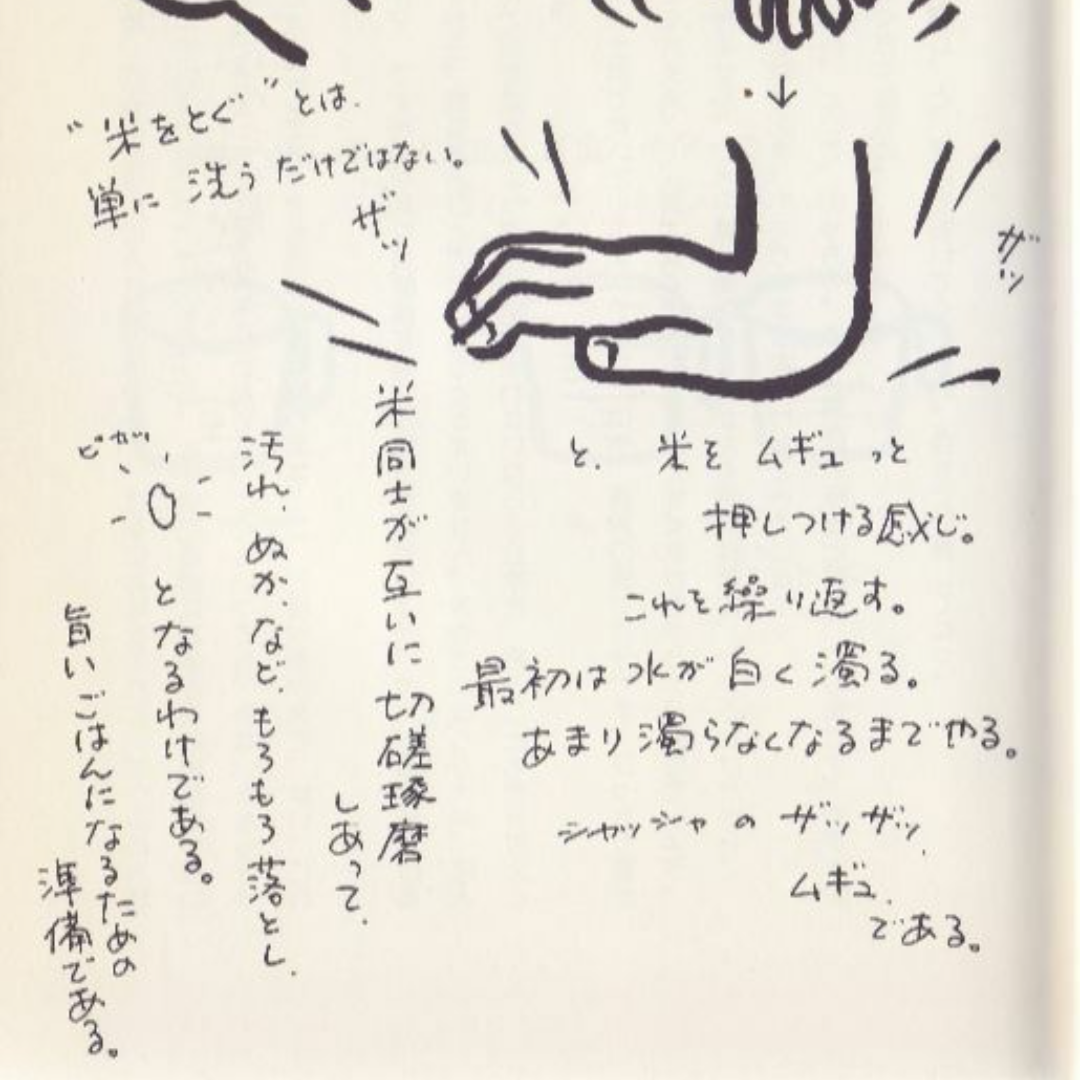 ザッ
と、米をムギュっと
押しつける感じ。
これを繰り返す。
最初は水が白く濁る。
あまり濁らなくなるまでやる。
シャッシャのザッザッ、
ムギュ、
である。
"米をとぐ"とは、
単に洗うだけではない。
ザッ
米同士が互いに切磋琢磨
しあって、
汚れ、ぬか、など、もろもろ落とし、
ピカッ
となるわけである。
旨いごはんになるための
準備である。